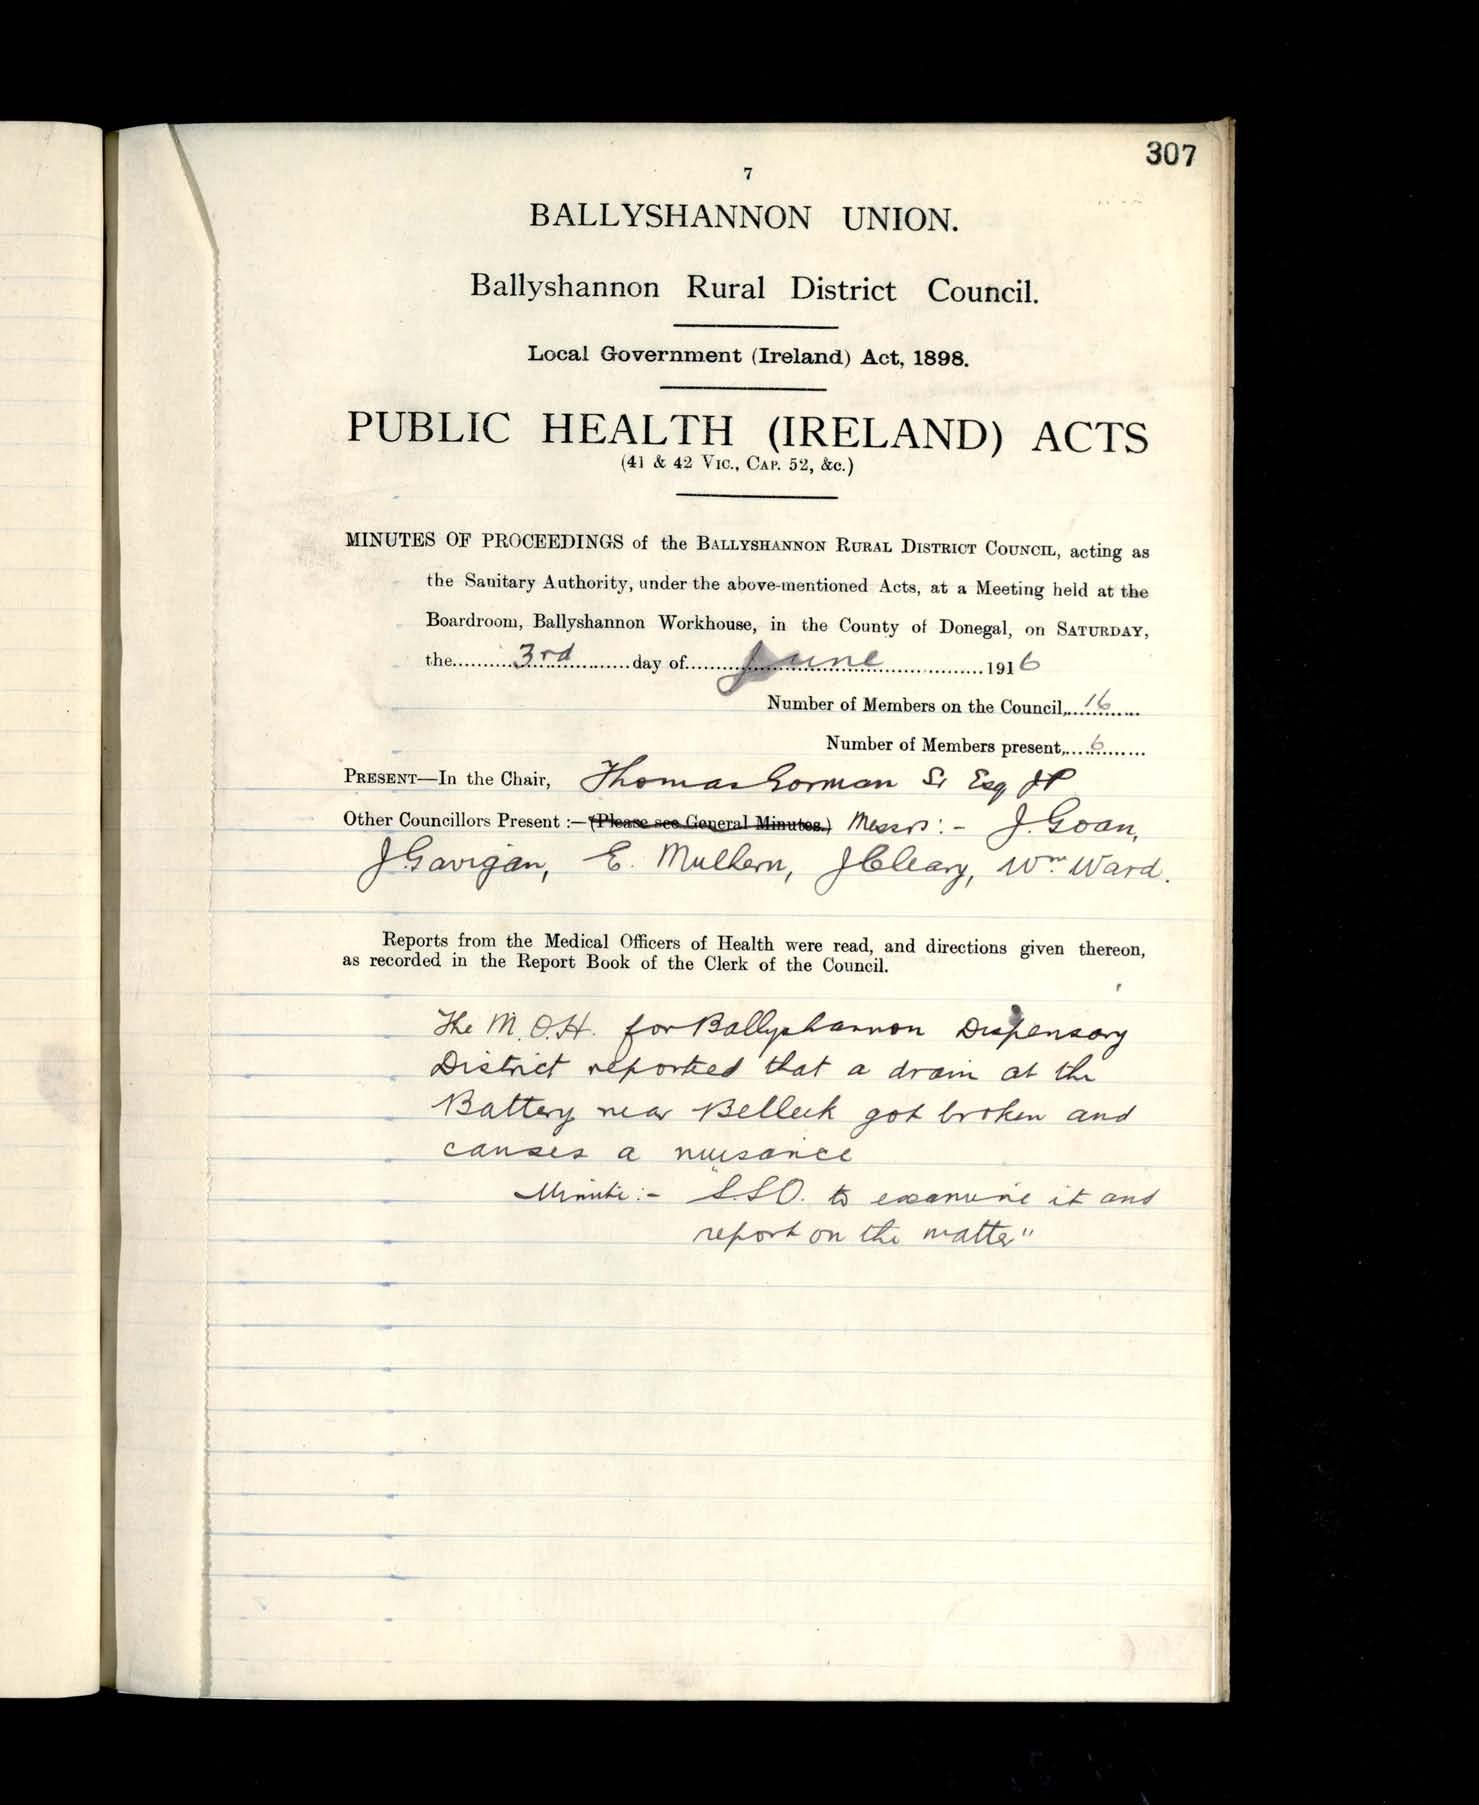 307
7
BALLYSHANNON UNION.
Ballyshannon Rural District Council.
Local Government (Ireland) Act, 1898.
PUBLIC HEALTH (IRELAND) ACTS
(41 & 42 Vic., Cap. 52, &c.)
MINUTES OF PROCEEDINGS of the Ballyshannon Rural District Council, acting as
the Sanitary Authority, under the above-mentioned Acts, at a Meeting held at the
Boardroom, Ballyshannon Workhouse, in the County of Donegal, on Saturday,
the 3rd day of June 1916
Number of Members on the Council, 16
Number of Members present, 6
Present—In the Chair, Thomas Gorman Sr Esq JP
Other Councillors Present :—(Please see General Minutes.) Messrs :- J. Goan,
J Gavigan, E. Mulhern, J Cleary, Wm. Ward.
Reports from the Medical Officers of Health were read, and directions given thereon,
as recorded in the Report Book of the Clerk of the Council.
The M.O.H. for Ballyshannon Dispensary
District reported that a drain at the
Battery near Belleek got broken and
causes a nuisance
Minute :- "S.S.O. to examine it and
report on the matter"